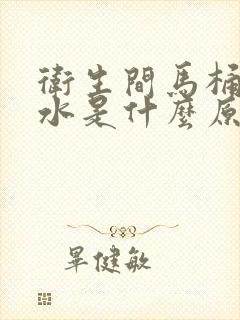 衛生間馬桶
水是什麼原
畢健敏